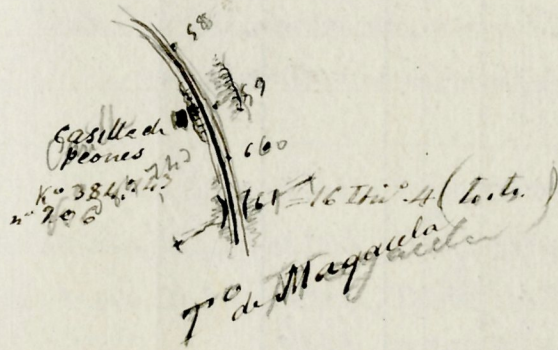 58
59
Casilla de
peones
660
Kº 384,743
nº 206
761
16
4 (
Tº de Magacela